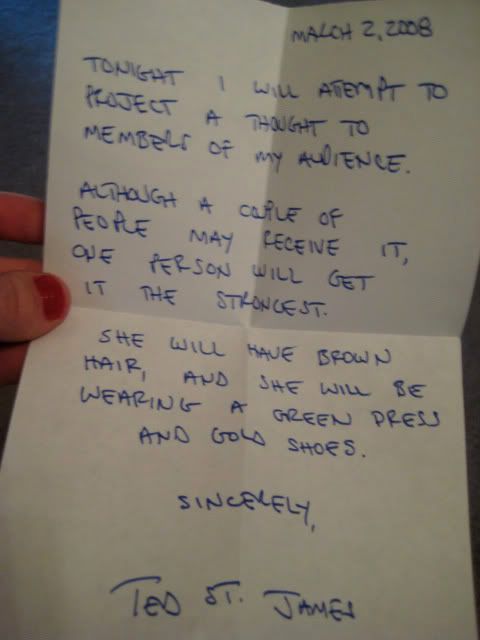 MARCH 2, 2008
TONIGHT I WILL ATTEMPT TO
PROJECT A THOUGHT TO
MEMBERS OF MY AUDIENCE.
ALTHOUGH A COUPLE OF
PEOPLE MAY RECEIVE IT,
ONE PERSON WILL GET
IT THE STRONGEST.
SHE WILL HAVE BROWN
HAIR, AND SHE WILL BE
WEARING A GREEN DRESS
AND GOLD SHOES.
SINCERELY,
TED ST. JAMES